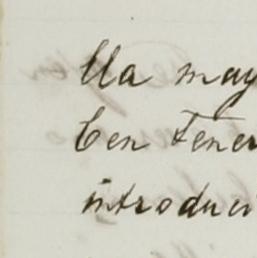 Ua may
Cen Fener
introduci